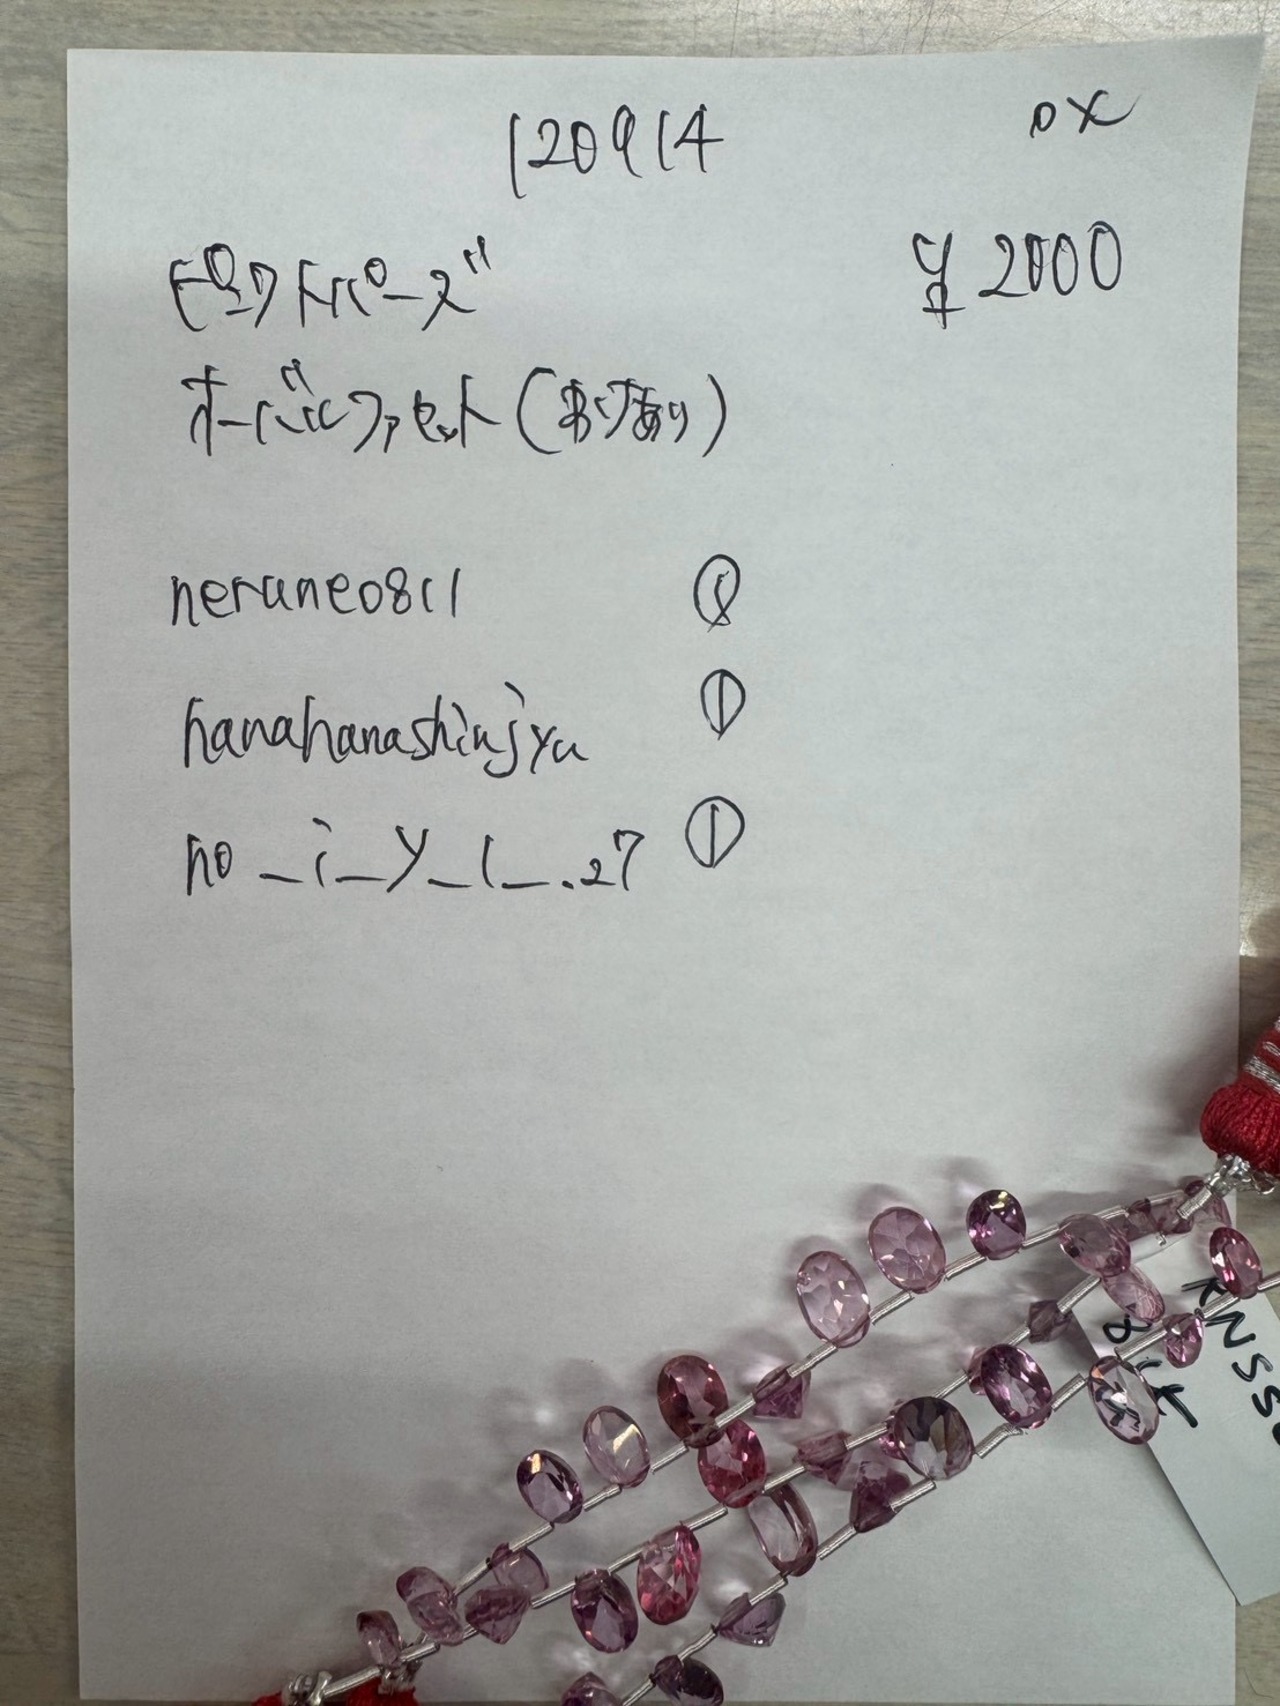 120914
OX
ピンクトパーズ
¥2000
オーバルファセット(おけあり)
nerune0811
①
hanahanashinjyu
①
no_i_y_l_.27
①